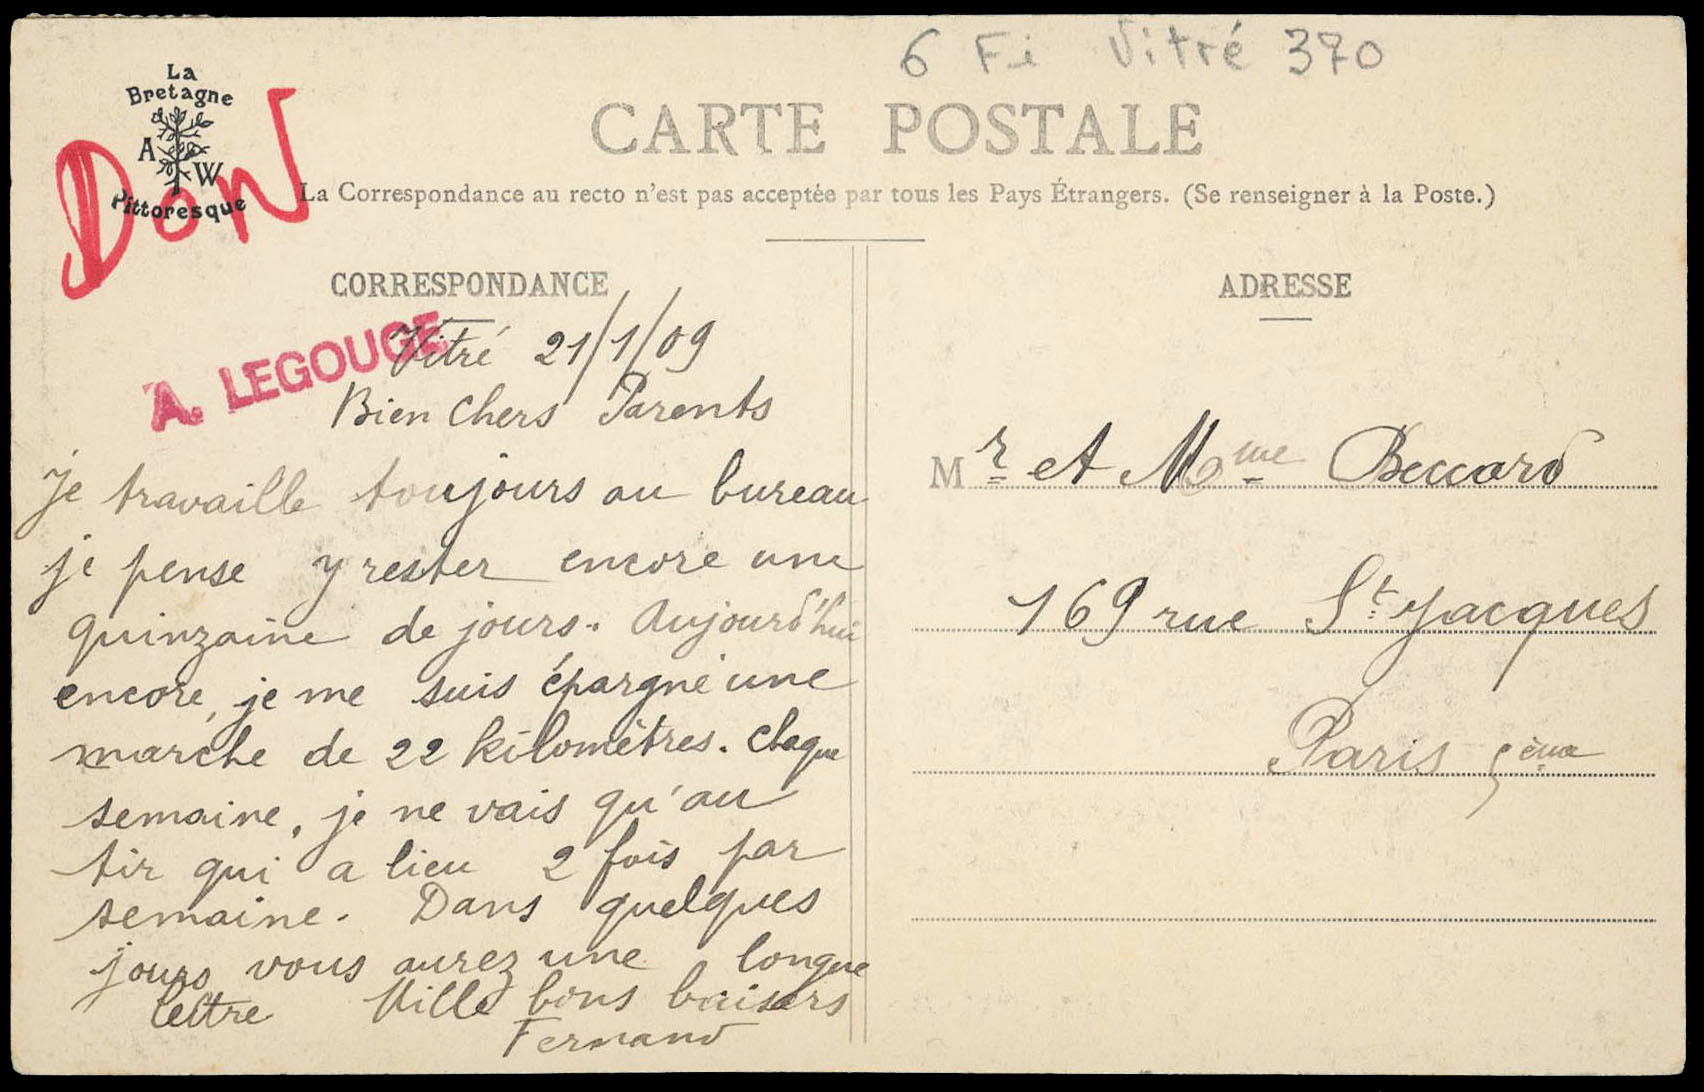 6 Fi Vitré 370
La
Bretagne
A W
Pittoresque
DON
CARTE POSTALE
La Correspondance au recto n'est pas acceptée par tous les Pays Étrangers. (Se renseigner à la Poste.)
CORRESPONDANCE
A. LEGOUGE
Vitré 21/1/09
Bien Chers Parents
Je travaille toujours au bureau
je pense y rester encore une
quinzaine de jours. Aujourd'hui
encore, je me suis épargné une
marche de 22 kilomètres. Chaque
semaine, je ne vais qu'au
tir qui a lieu 2 fois par
semaine. Dans quelques
jours vous aurez une longue
lettre Mille bons baisers
Fernand
ADRESSE
Mr et Mme Beccard
169 rue St Jacques
Paris 5ème